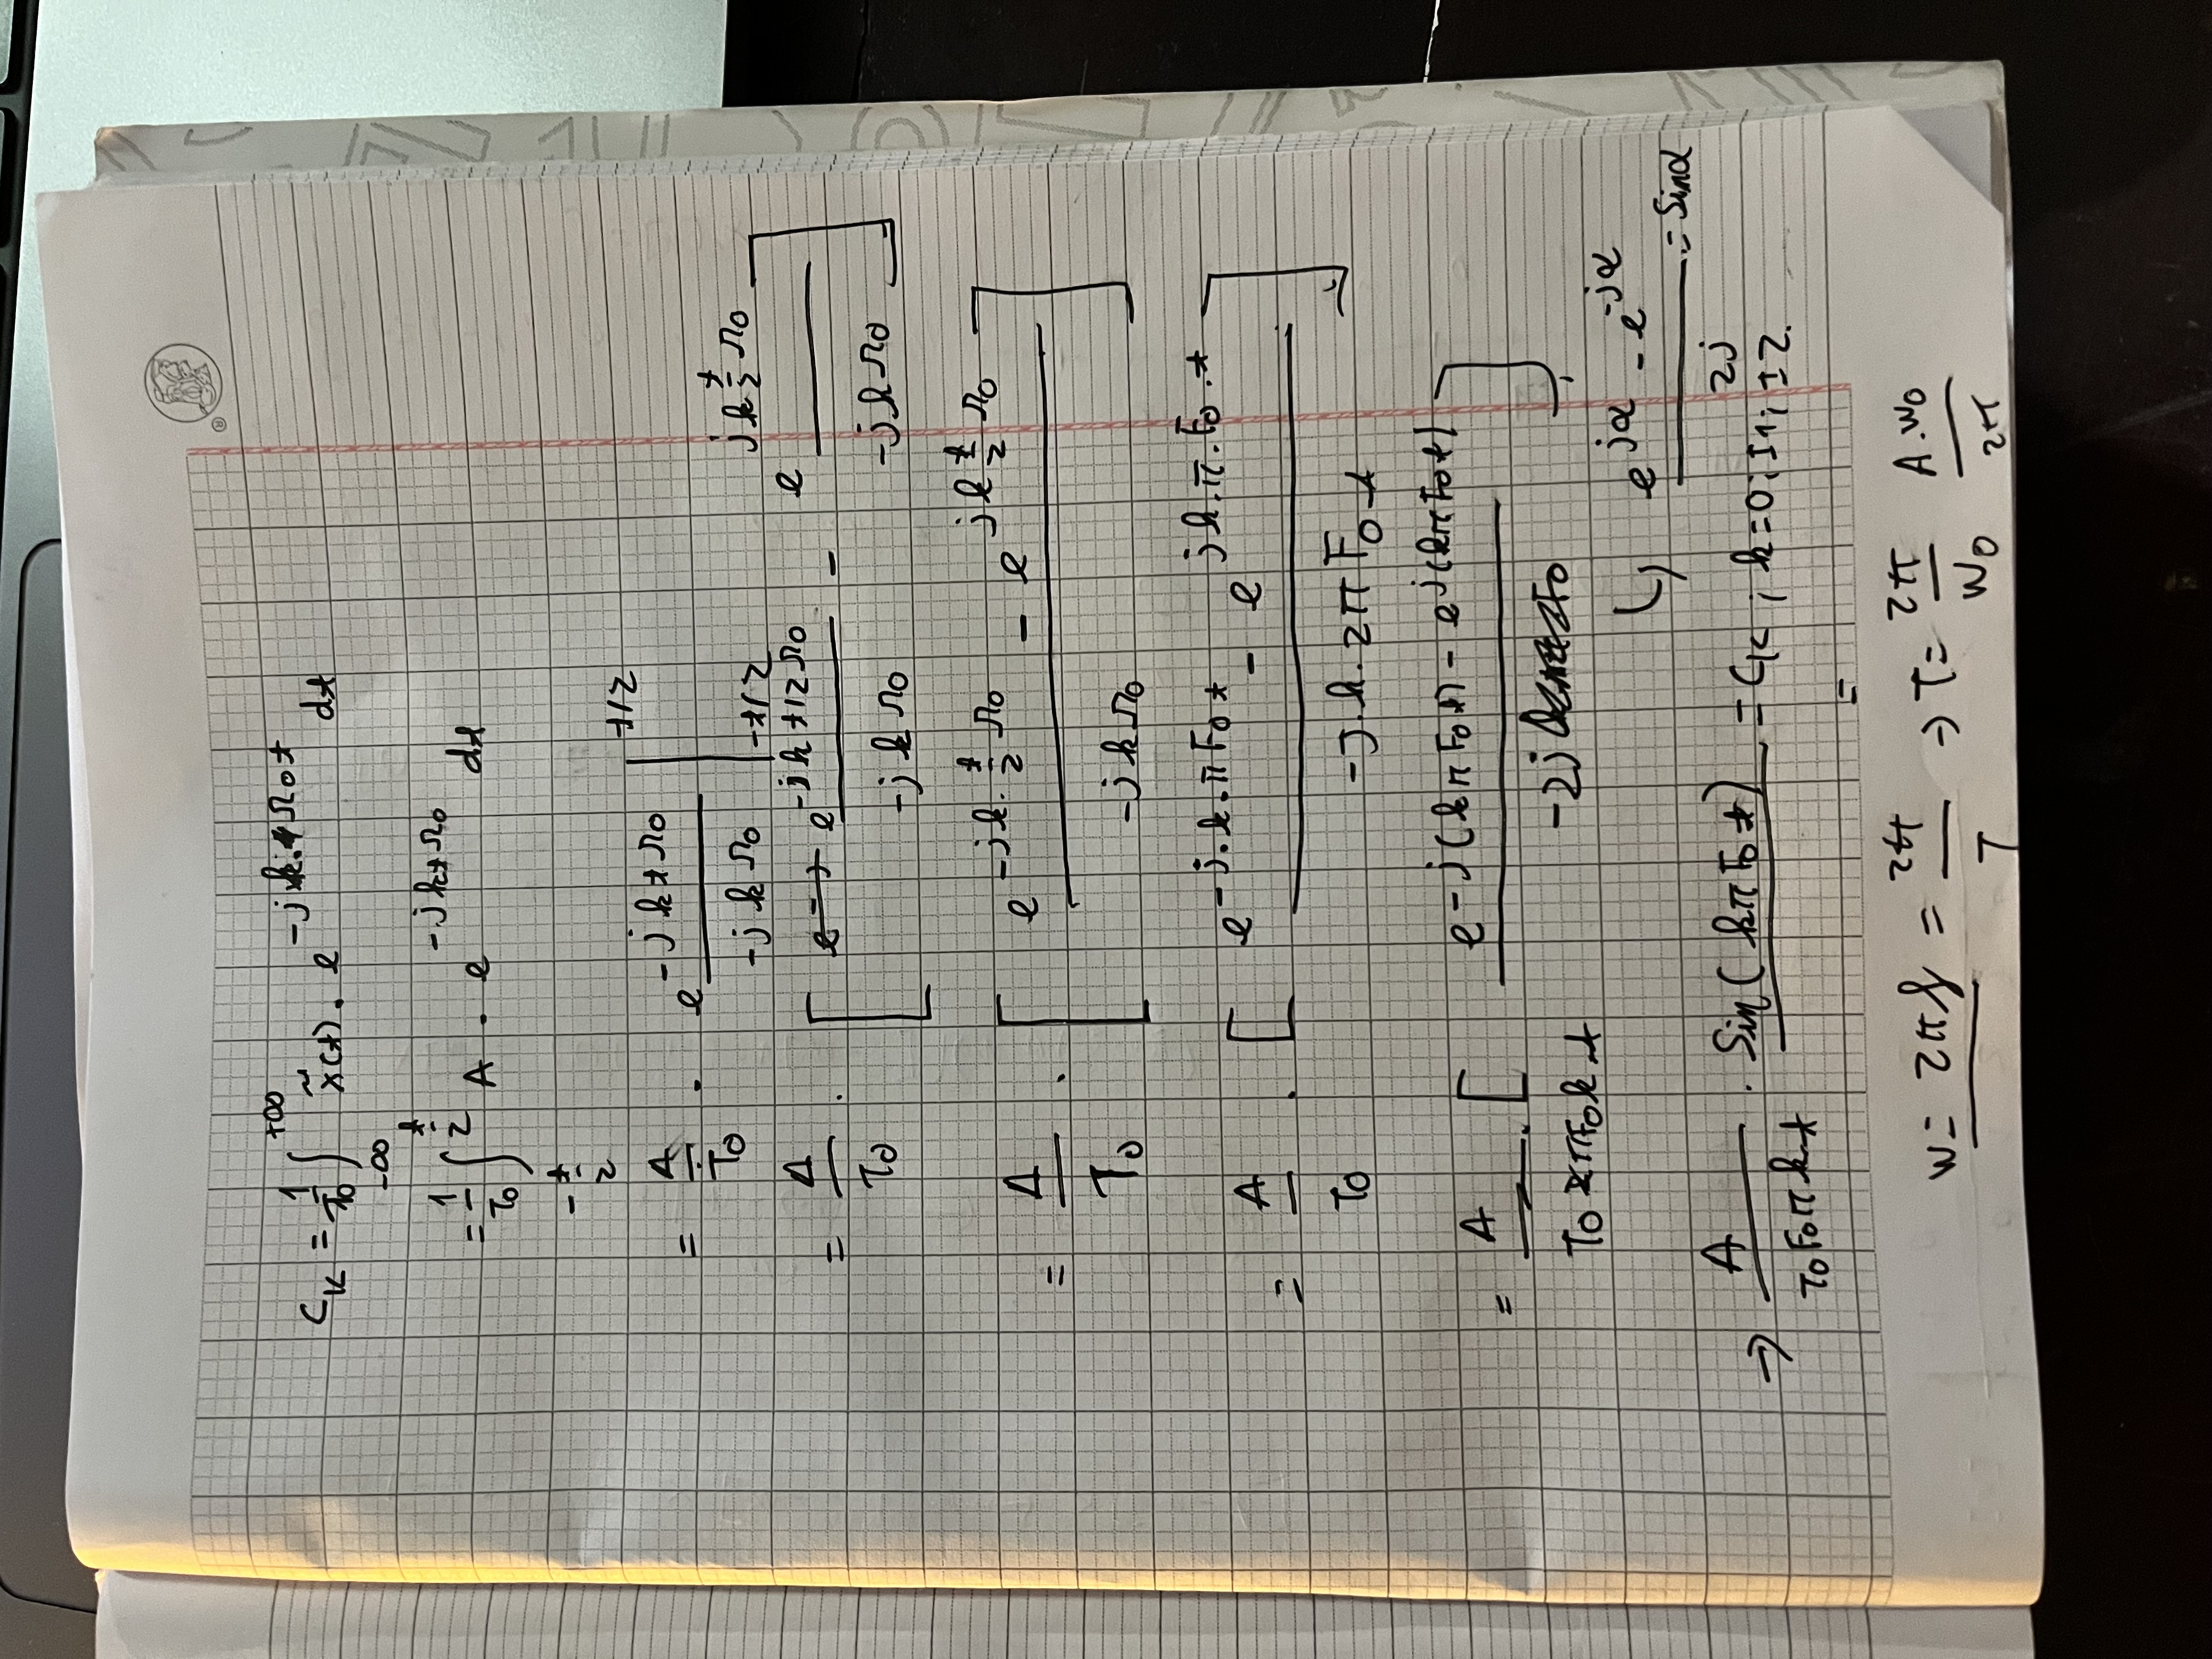 C_K = 1/T0 ∫_{-∞}^{+∞} x̃(t) . e^{-jk.Ω0t} dt
= 1/T0 ∫_{-t/2}^{t/2} A . e^{-jktΩ0} dt
= A/T0 . e^{-jktΩ0} / -jkΩ0 |_{-t/2}^{t/2}
= A/T0 . [ e^{-jkt/2Ω0} / -jkΩ0 - e^{jk t/2 Ω0} / -jkΩ0 ]
= A/T0 . [ (e^{-jk. t/2 Ω0} - e^{jk t/2 Ω0}) / -jkΩ0 ]
= A/T0 . [ (e^{-j.k.πF0t} - e^{jk.π.F0.t}) / -j.k.2πF0t ]
= A/(T0πF0kt) . [ (e^{-j(kπF0t)} - e^{j(kπF0t)}) / -2j ]
↳ (e^{jα} - e^{-jα}) / 2j = Sinα
→ A/(T0F0πkt) . Sin(kπF0t) = C_K ; k=0; ±1; ±2.
=
w = 2πf = 2π/T → T = 2π/w0 A.w0/2π